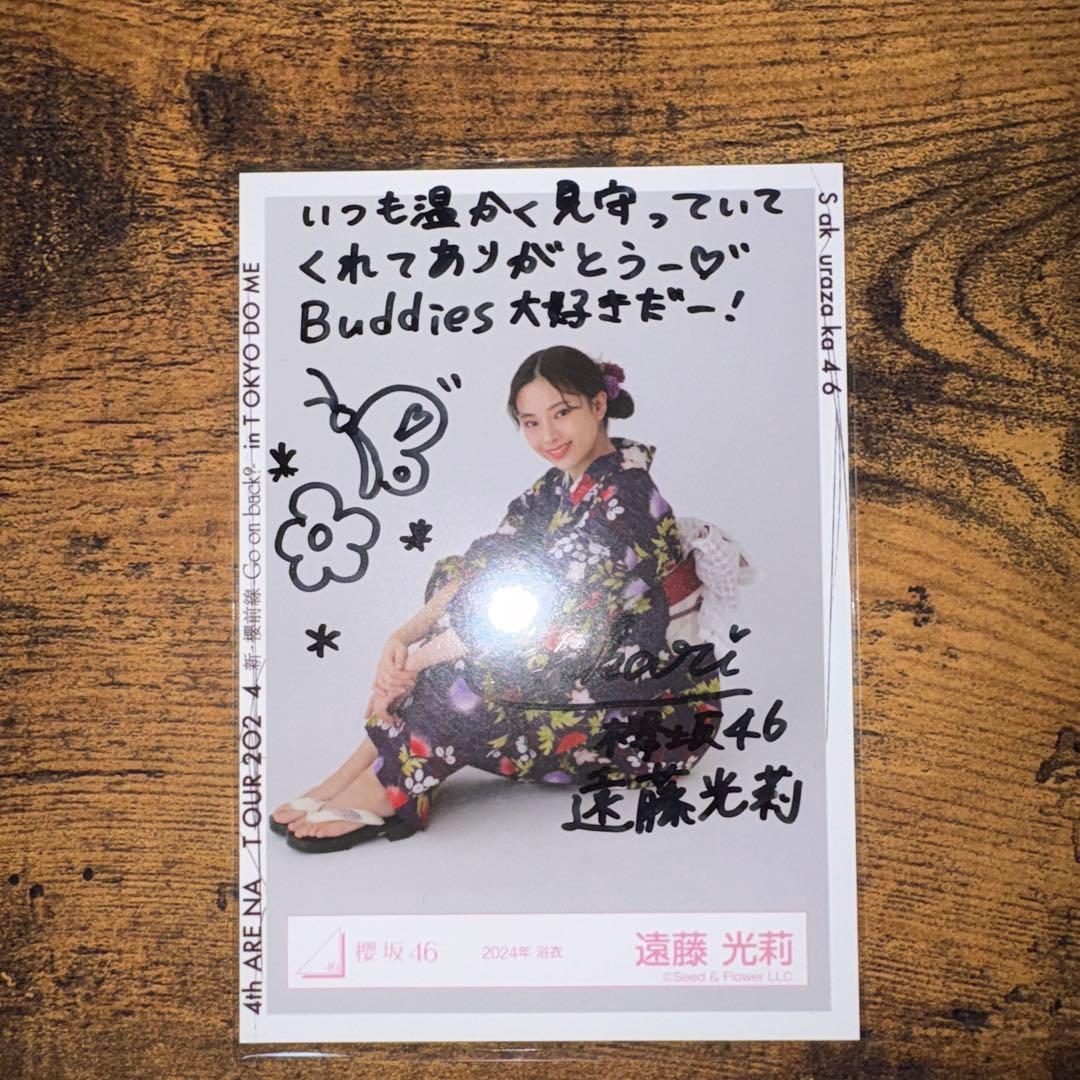 いつも温かく見守っていて
くれてありがとうー♡
Buddies大好きだー!
4th ARENA TOUR 2024 新・櫻前線 -Go on back?- in TOKYO DOME
Sakurazaka46
櫻坂46
遠藤光莉
櫻坂46
2024年 浴衣
遠藤 光莉
©Seed & Flower LLC